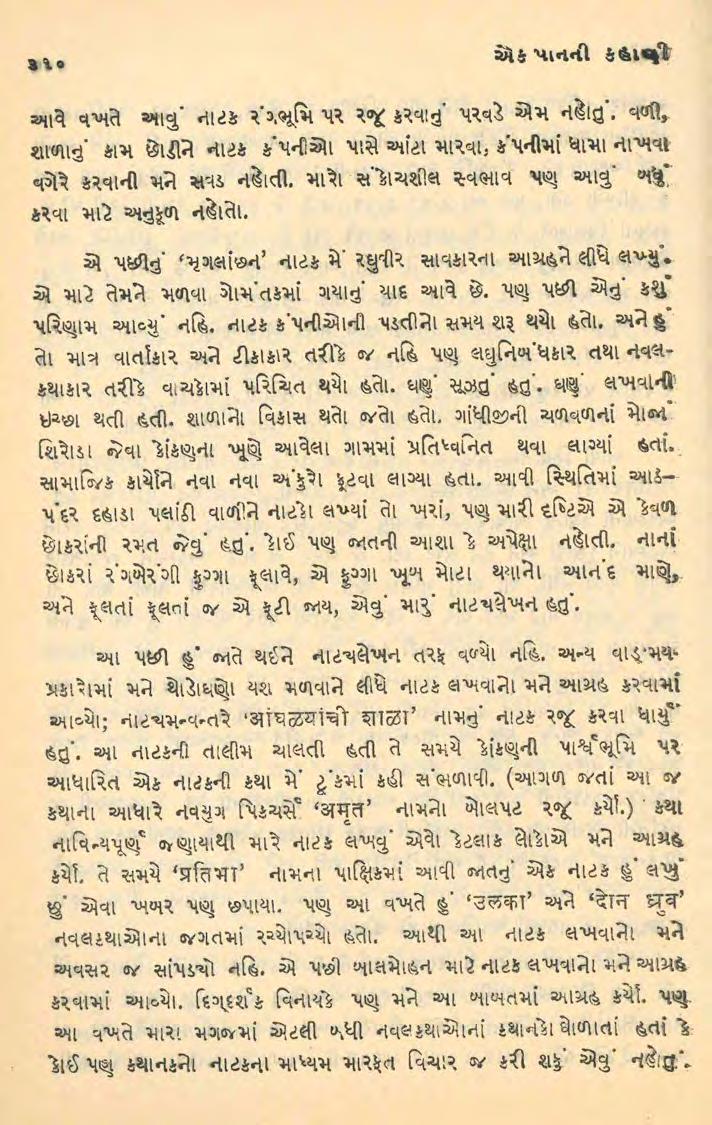 ૩૧૦
એક પાનની કહાણી
આવે વખતે આવું નાટક રંગભૂમિ પર રજૂ કરવાનું પરવડે એમ નહોતું. વળી,
શાળાનું કામ છોડીને નાટક કંપનીઓ પાસે આંટા મારવા, કંપનીમાં ધામા નાખવા
વગેરે કરવાની મને સવડ નહોતી. મારો સંકોચશીલ સ્વભાવ પણ આવું બધું
કરવા માટે અનુકૂળ નહોતો.
એ પછીનું ‘મૃગલાંછન’ નાટક મેં રઘુવીર સાવકારના આગ્રહને લીધે લખ્યું.
એ માટે તેમને મળવા ગોમંતકમાં ગયાનું યાદ આવે છે. પણ પછી એનું કશું
પરિણામ આવ્યું નહિ. નાટક કંપનીઓની પડતીનો સમય શરૂ થયો હતો. અને હું
તો માત્ર વાર્તાકાર અને ટીકાકાર તરીકે જ નહિ પણ લઘુનિબંધકાર તથા નવલ-
કથાકાર તરીકે વાચકોમાં પરિચિત થયો હતો. ઘણું સૂઝતું હતું. ઘણું લખવાની
ઇચ્છા થતી હતી. શાળાનો વિકાસ થતો જતો હતો. ગાંધીજીની ચળવળનાં મોજાં
શિરોડા જેવા કોંકણના ખૂણે આવેલા ગામમાં પ્રતિધ્વનિત થવા લાગ્યાં હતાં.
સામાજિક કાર્યોને નવા નવા અંકુરો ફૂટવા લાગ્યા હતા. આવી સ્થિતિમાં આઠ-
પંદર દહાડા પલાંઠી વાળીને નાટકો લખ્યાં તો ખરાં, પણ મારી દૃષ્ટિએ એ કેવળ
છોકરાંની રમત જેવું હતું. કોઈ પણ જાતની આશા કે અપેક્ષા નહોતી. નાનાં
છોકરાં રંગબેરંગી ફુગ્ગા ફૂલાવે, એ ફુગ્ગા ખૂબ મોટા થયાનો આનંદ માણે,
અને ફૂલતાં ફૂલતાં જ એ ફૂટી જાય, એવું મારું નાટ્યલેખન હતું.
આ પછી હું જાતે થઈને નાટ્યલેખન તરફ વળ્યો નહિ. અન્ય વાઙ્‌મય-
પ્રકારોમાં મને થોડોઘણો યશ મળવાને લીધે નાટક લખવાનો મને આગ્રહ કરવામાં
આવ્યો; નાટ્યમન્વન્તરે ‘आंधळ्यांची शाळा’ નામનું નાટક રજૂ કરવા ધાર્યું
હતું. આ નાટકની તાલીમ ચાલતી હતી તે સમયે કોંકણની પાર્શ્વભૂમિ પર
આધારિત એક નાટકની કથા મેં ટૂંકમાં કહી સંભળાવી. (આગળ જતાં આ જ
કથાના આધારે નવયુગ પિક્ચર્સે ‘अमृत’ નામનો બોલપટ રજૂ કર્યો.) કથા
નાવિન્યપૂર્ણ જણાયાથી મારે નાટક લખવું એવો કેટલાક લોકોએ મને આગ્રહ
કર્યો. તે સમયે ‘प्रतिभा’ નામના પાક્ષિકમાં આવી જાતનું એક નાટક હું લખું
છું એવા ખબર પણ છપાયા. પણ આ વખતે હું ‘उलका’ અને ‘दोन ध्रुव’
નવલકથાઓના જગતમાં રચ્યોપચ્યો હતો. આથી આ નાટક લખવાનો મને
અવસર જ સાંપડ્યો નહિ. એ પછી બાલમોહન માટે નાટક લખવાનો મને આગ્રહ
કરવામાં આવ્યો. દિગ્દર્શક વિનાયકે પણ મને આ બાબતમાં આગ્રહ કર્યો. પણ
આ વખતે મારા મગજમાં એટલી બધી નવલકથાઓનાં કથાનકો ઘોળાતાં હતાં કે
કોઈ પણ કથાનકનો નાટકના માધ્યમ મારફત વિચાર જ કરી શકું એવું નહોતું.